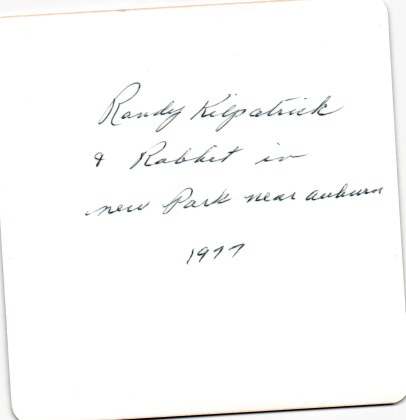 Randy Kilpatrick
& Rabbit in
new Park near auburn
1977